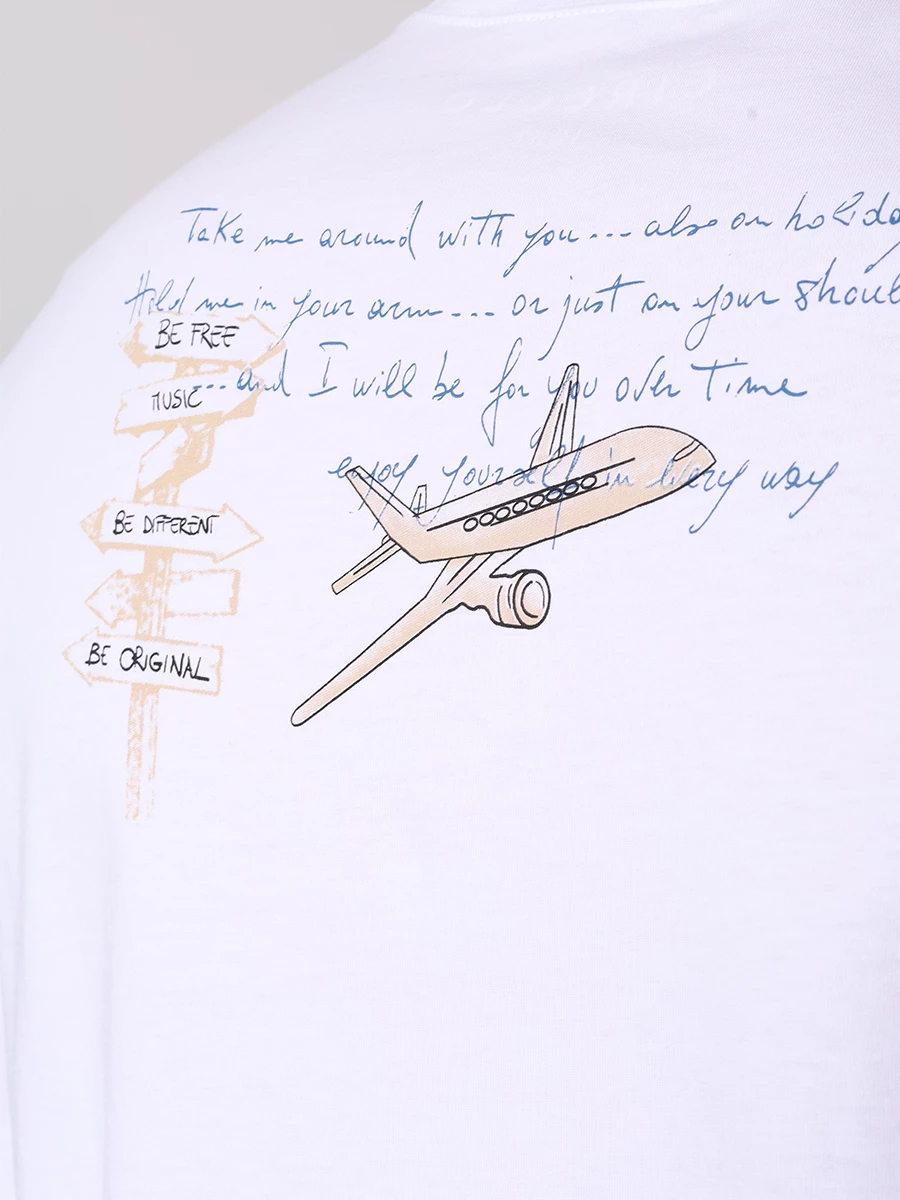 Take me around with you... also on holiday
Hold me in your arm... or just on your shoul
BE FREE
...and I will be for you over Time
MUSIC
enjoy yourself in every way
BE DIFFERENT
BE ORIGINAL